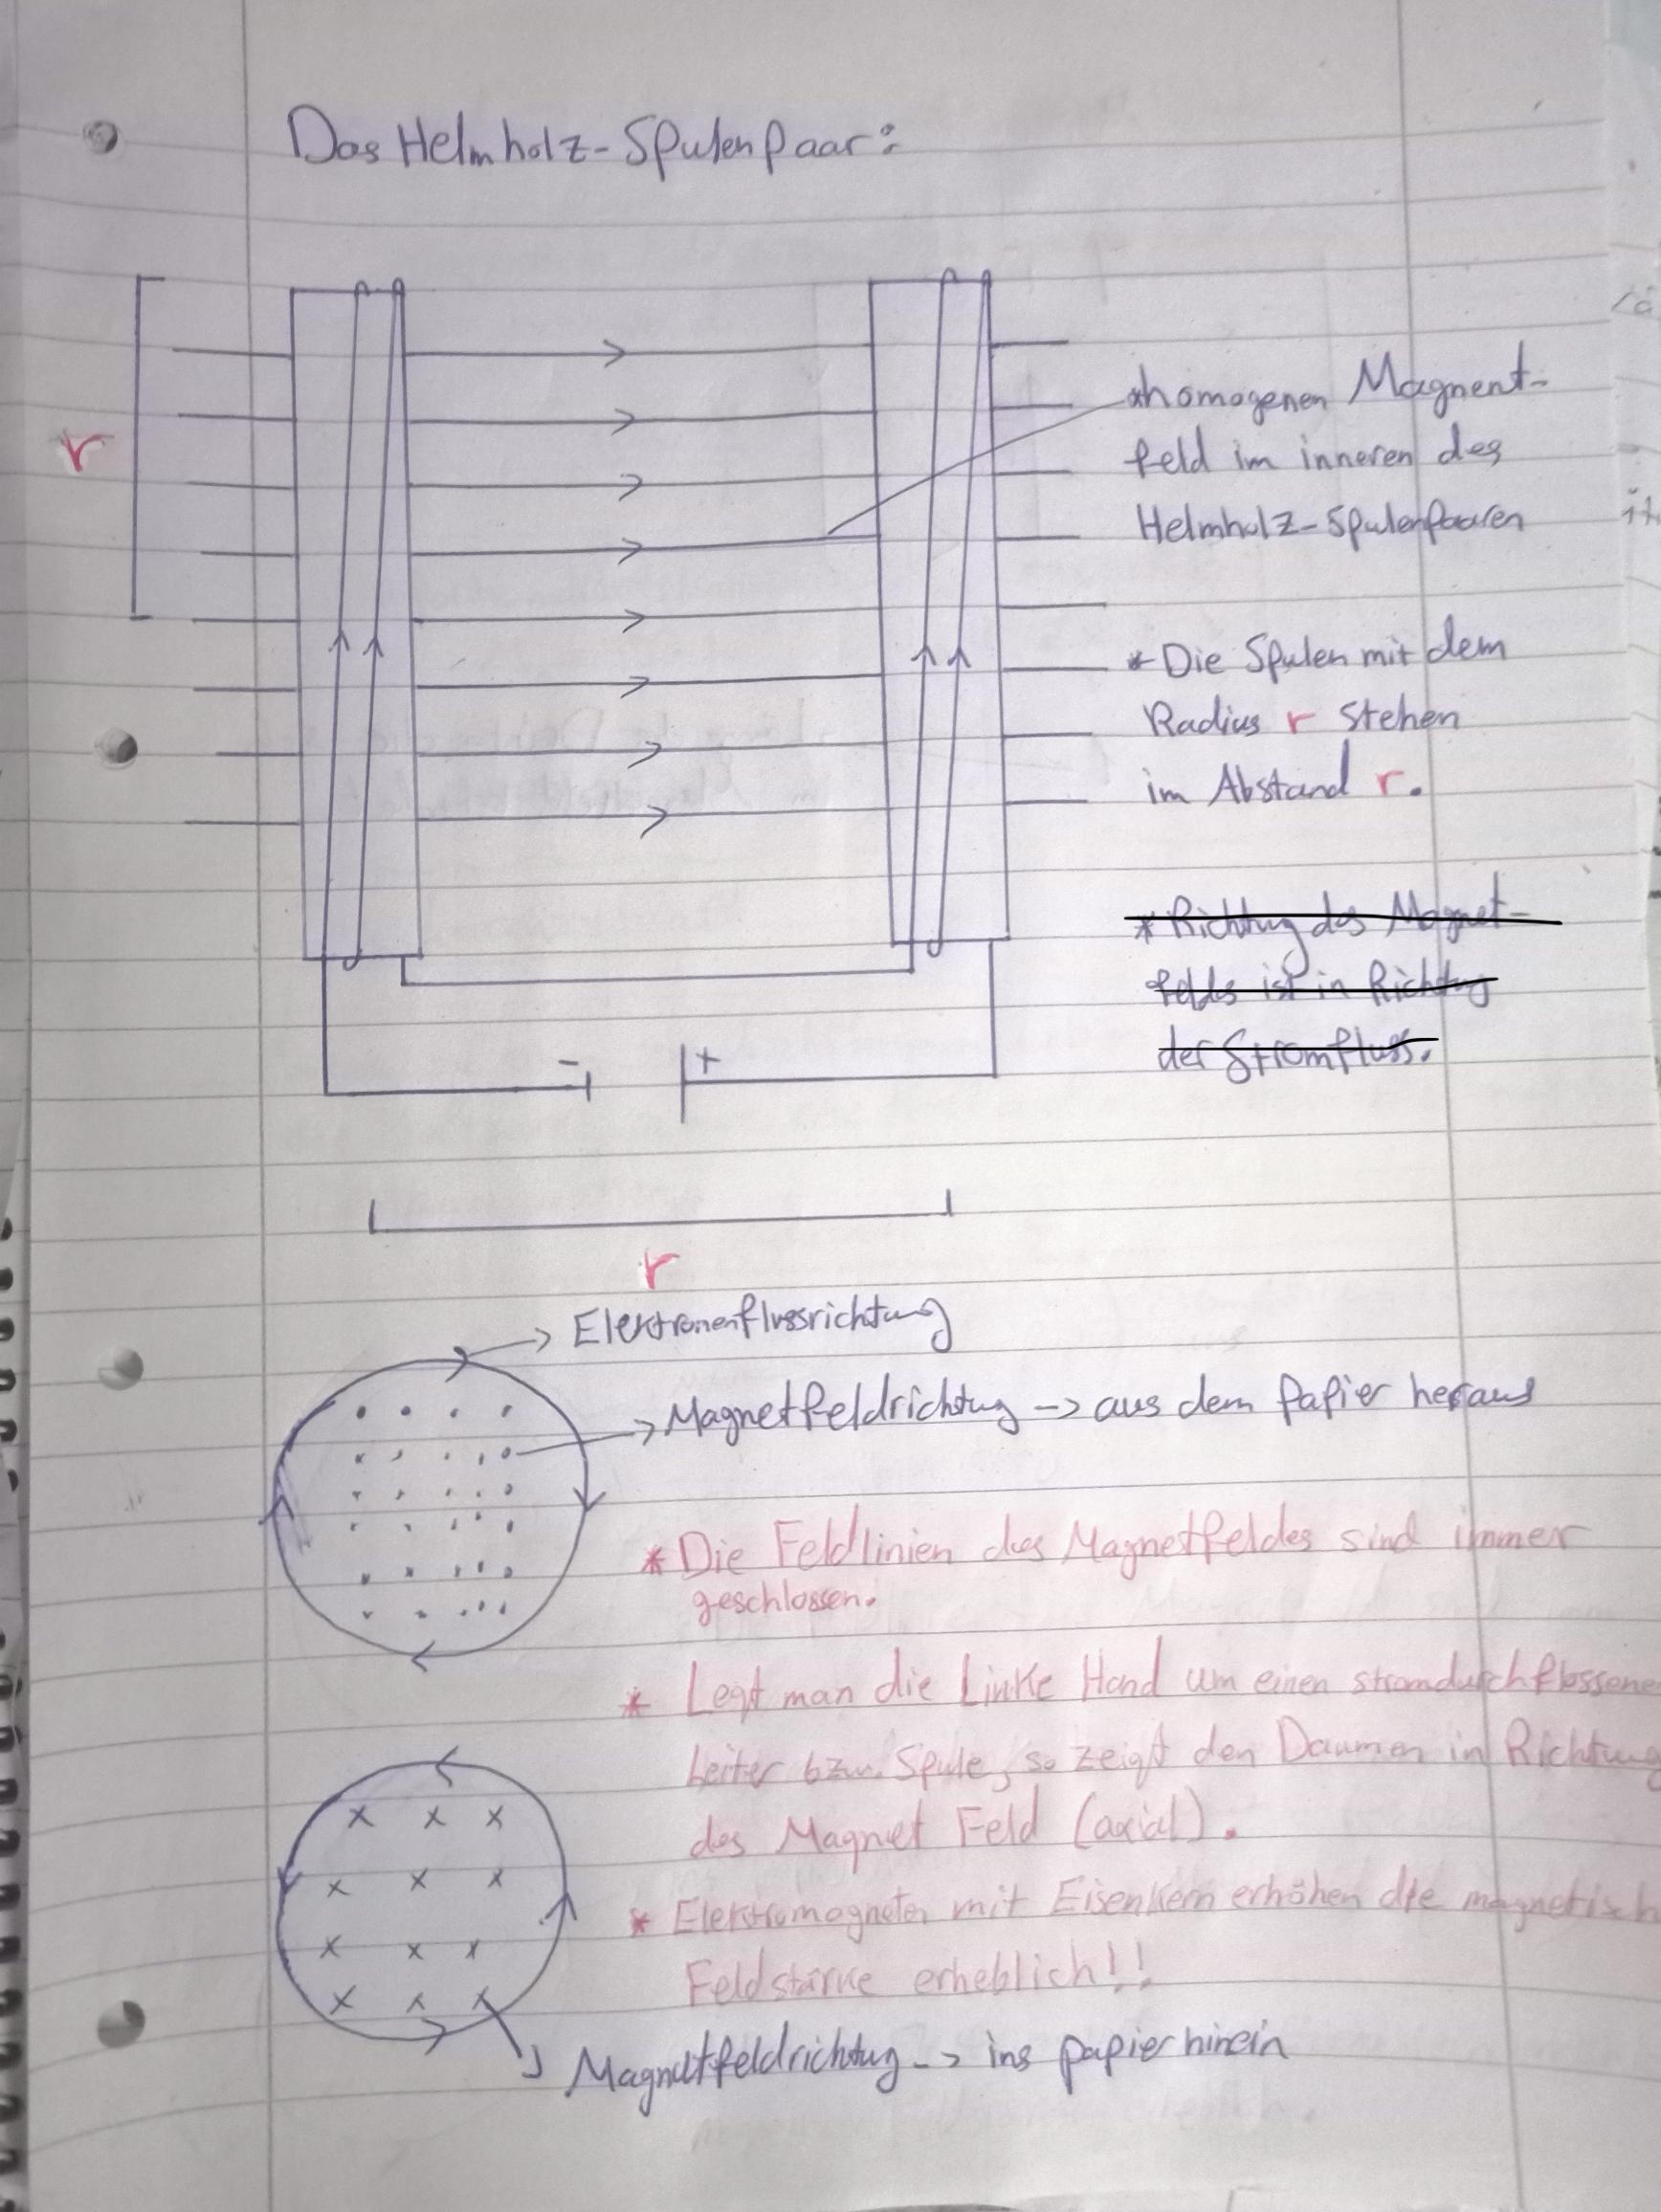 Das Helmholz-Spulenpaar:
r
homogenen Magnent-
feld im inneren des
Helmholz-Spulenpaaren
* Die Spulen mit dem
Radius r stehen
im Abstand r.
* Richtung des Magnet-
feldes ist in Richtung
der Stromfluss.
- +
r
-> Elektronenflussrichtung
-> Magnetfeldrichtung -> aus dem papier heraus
* Die Feldlinien des Magnetfeldes sind immer
geschlossen.
* Legt man die Linke Hand um einen stromdurchflossene
Leiter bzw. Spule, so zeigt den Daumen in Richtung
des Magnet Feld (axial).
* Elektromagneten mit Eisenkern erhöhen die magnetisch
Feldstärke erheblich!!
Magnetfeldrichtung -> ins papier hinein